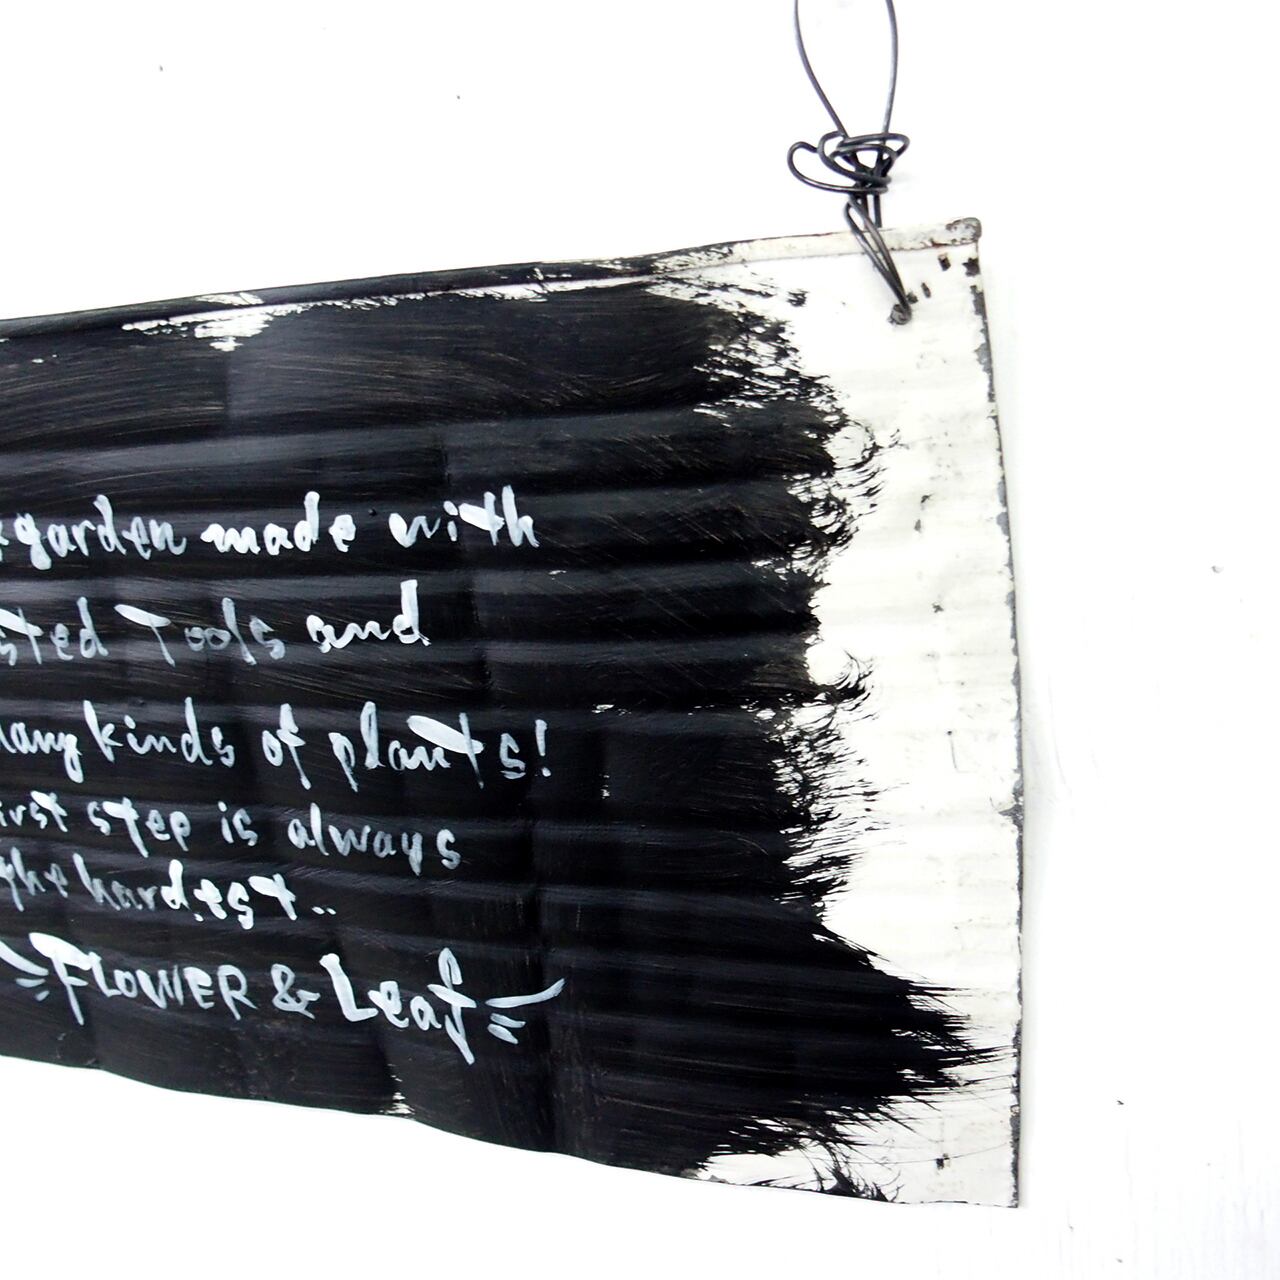 garden made with
sted Tools and
any kinds of plants!
irst step is always
the hardest..
FLOWER & Leaf